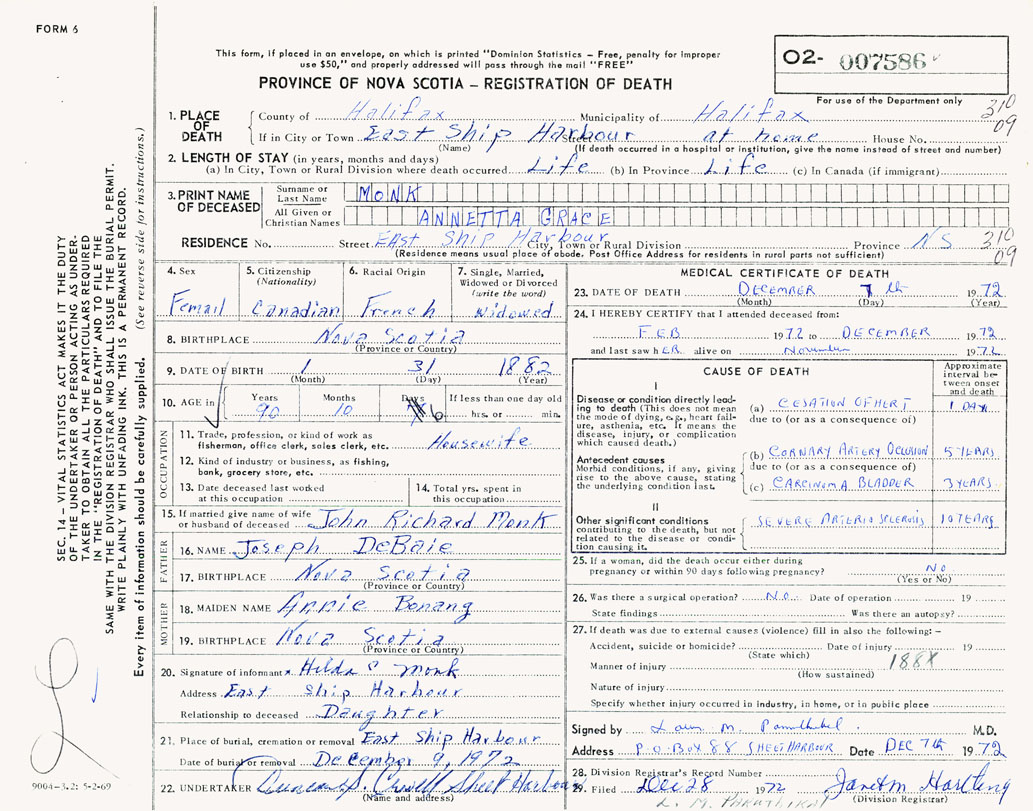 FORM 6
This form, if placed in an envelope, on which is printed "Dominion Statistics – Free, penalty for improper
use $50," and properly addressed will pass through the mail "FREE"
PROVINCE OF NOVA SCOTIA – REGISTRATION OF DEATH
02- 007586
For use of the Department only
310
09
1. PLACE OF DEATH
County of Halifax Municipality of Halifax
If in City or Town East Ship Harbour Street at home House No.
(Name) (If death occurred in a hospital or institution, give the name instead of street and number)
2. LENGTH OF STAY (in years, months and days)
(a) In City, Town or Rural Division where death occurred Life (b) In Province Life (c) In Canada (if immigrant)
3. PRINT NAME OF DECEASED
Surname or Last Name MONK
All Given or Christian Names ANNETTA GRACE
RESIDENCE No. Street East Ship Harbour City, Town or Rural Division Province NS 310
09
(Residence means usual place of abode. Post Office Address for residents in rural parts not sufficient)
4. Sex Femail
5. Citizenship (Nationality) Canadian
6. Racial Origin French
7. Single, Married, Widowed or Divorced (write the word) Widowed
8. BIRTHPLACE Nova Scotia
(Province or Country)
9. DATE OF BIRTH 1 31 1882
(Month) (Day) (Year)
10. AGE in Years 90 Months 10 Days 6 If less than one day old hrs. or min.
OCCUPATION
11. Trade, profession, or kind of work as
fisherman, office clerk, sales clerk, etc. Housewife
12. Kind of industry or business, as fishing,
bank, grocery store, etc.
13. Date deceased last worked
at this occupation
14. Total yrs. spent in
this occupation
15. If married give name of wife
or husband of deceased John Richard Monk
FATHER
16. NAME Joseph DeBaie
17. BIRTHPLACE Nova Scotia
(Province or Country)
MOTHER
18. MAIDEN NAME Annie Bonang
19. BIRTHPLACE Nova Scotia
(Province or Country)
20. Signature of informant x Hilda P Monk
Address East Ship Harbour
Relationship to deceased Daughter
21. Place of burial, cremation or removal East Ship Harbour
Date of burial or removal December 9, 1972
22. UNDERTAKER Sheet Harbour
(Name and address)
MEDICAL CERTIFICATE OF DEATH
23. DATE OF DEATH DECEMBER 7 th 1972
(Month) (Day) (Year)
24. I HEREBY CERTIFY that I attended deceased from:
FEB 1972 to DECEMBER 1972
and last saw h ER alive on November 1972
CAUSE OF DEATH
Approximate interval between onset and death
I
Disease or condition directly leading to death (This does not
mean the mode of dying, e.g., heart failure, asthenia, etc. It means the
disease, injury, or complication
which caused death.)
(a) CESATION OF HERT 1 DAY
due to (or as a consequence of)
Antecedent causes
Morbid conditions, if any, giving
rise to the above cause, stating
the underlying condition last.
(b) CORNARY ARTERY OCLUSION 5 YEARS
due to (or as a consequence of)
(c) CARCINOMA BLADDER 3 YEARS
II
Other significant conditions
contributing to the death, but not
related to the disease or condition
causing it.
SEVERE ARTERIO SCLEROSIS 10 YEARS
25. If a woman, did the death occur either during
pregnancy or within 90 days following pregnancy? NO
(Yes or No)
26. Was there a surgical operation? NO Date of operation 19
State findings Was there an autopsy?
27. If death was due to external causes (violence) fill in also the following: –
Accident, suicide or homicide? Date of injury 19
(State which)
188X
Manner of injury
(How sustained)
Nature of injury
Specify whether injury occurred in industry, in home, or in public place
Signed by M.D.
Address P.O. BOX 88 SHEET HARBOUR Date DEC 7th 1972
28. Division Registrar's Record Number
29. Filed Dec 28 1972 Janet M Hartling
(Division Registrar)
SEC. 14 – VITAL STATISTICS ACT MAKES IT THE DUTY
OF THE UNDERTAKER OR PERSON ACTING AS UNDER-
TAKER TO OBTAIN ALL THE PARTICULARS REQUIRED
IN THE "REGISTRATION OF DEATH" AND TO FILE THE
SAME WITH THE DIVISION REGISTRAR WHO SHALL ISSUE THE BURIAL PERMIT.
WRITE PLAINLY WITH UNFADING INK. THIS IS A PERMANENT RECORD.
Every item of information should be carefully supplied. (See reverse side for instructions.)
9004-3.2: 5-2-69